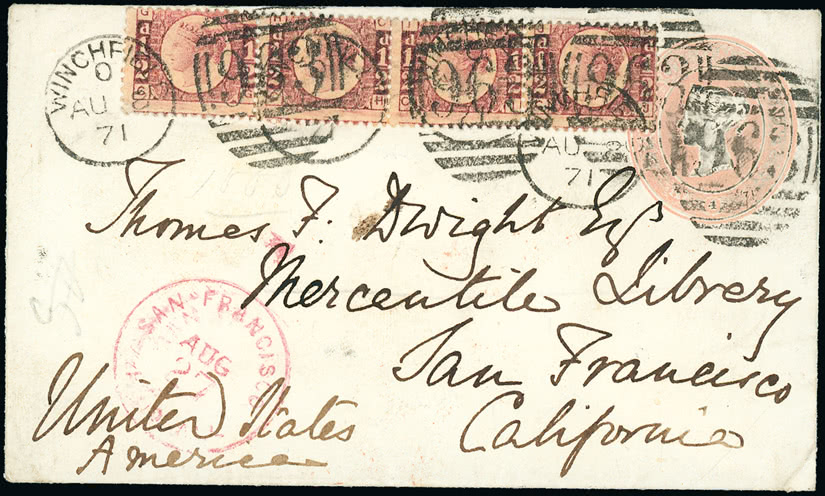 WINCHFI
O
AU
71
AU
71
Thomas F. Dwight Esqr
Mercantile Library
San Francisco
California
United States
America
SAN FRANCISCO
AUG
27